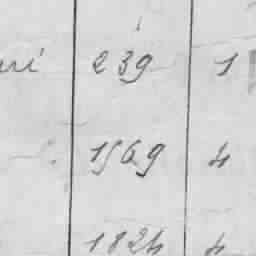 239 1
1569 4
1824 4